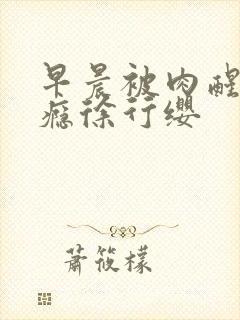 早晨被肉醒
瘾徐行缨
萧筱檬